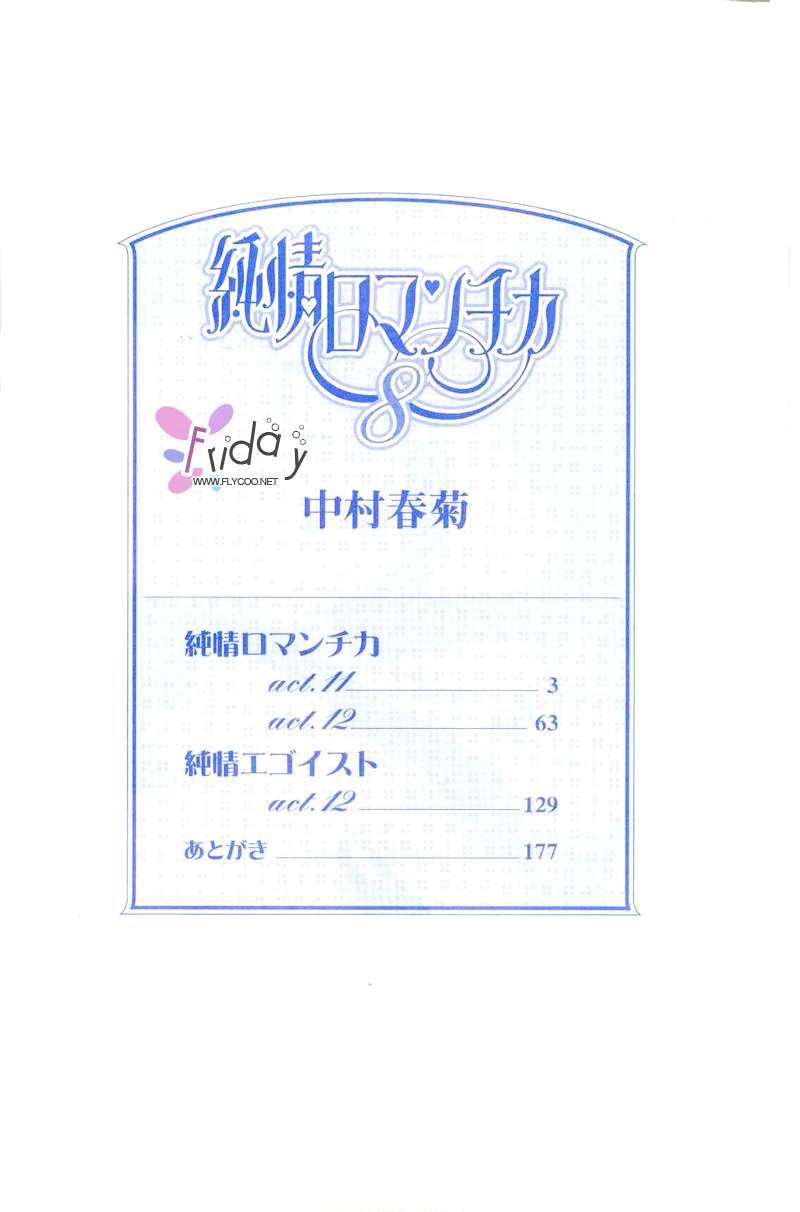 純情ロマンチカ
8
Friday
WWW.FLYCOO.NET
中村春菊
純情ロマンチカ
act.11 3
act.12 63
純情エゴイスト
act.12 129
あとがき 177